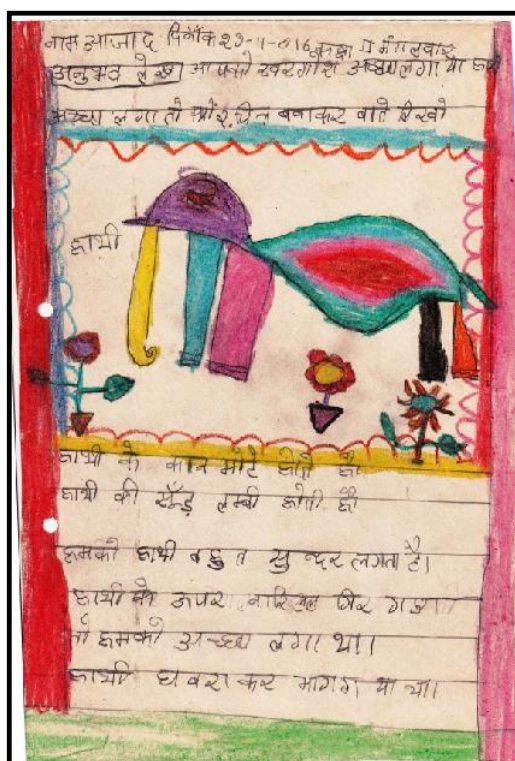 नाम आजाद दिनाँक 29-11-016 कक्षा II मंगलवार
अनुभव लेख आपको खरगोश अच्छा लगा या
अच्छा लगा तो क्यों, चित्र बनाकर बाते लिखो
हाथी
हाथी के कान मोटे होते है
हाथी की सूँड़ लम्बी होती है
हमको हाथी बहुत सुन्दर लगता है।
हाथी के ऊपर नारियल गिर गया
तो हमको अच्छा लगा था।
हाथी घबराकर भाग गया था।